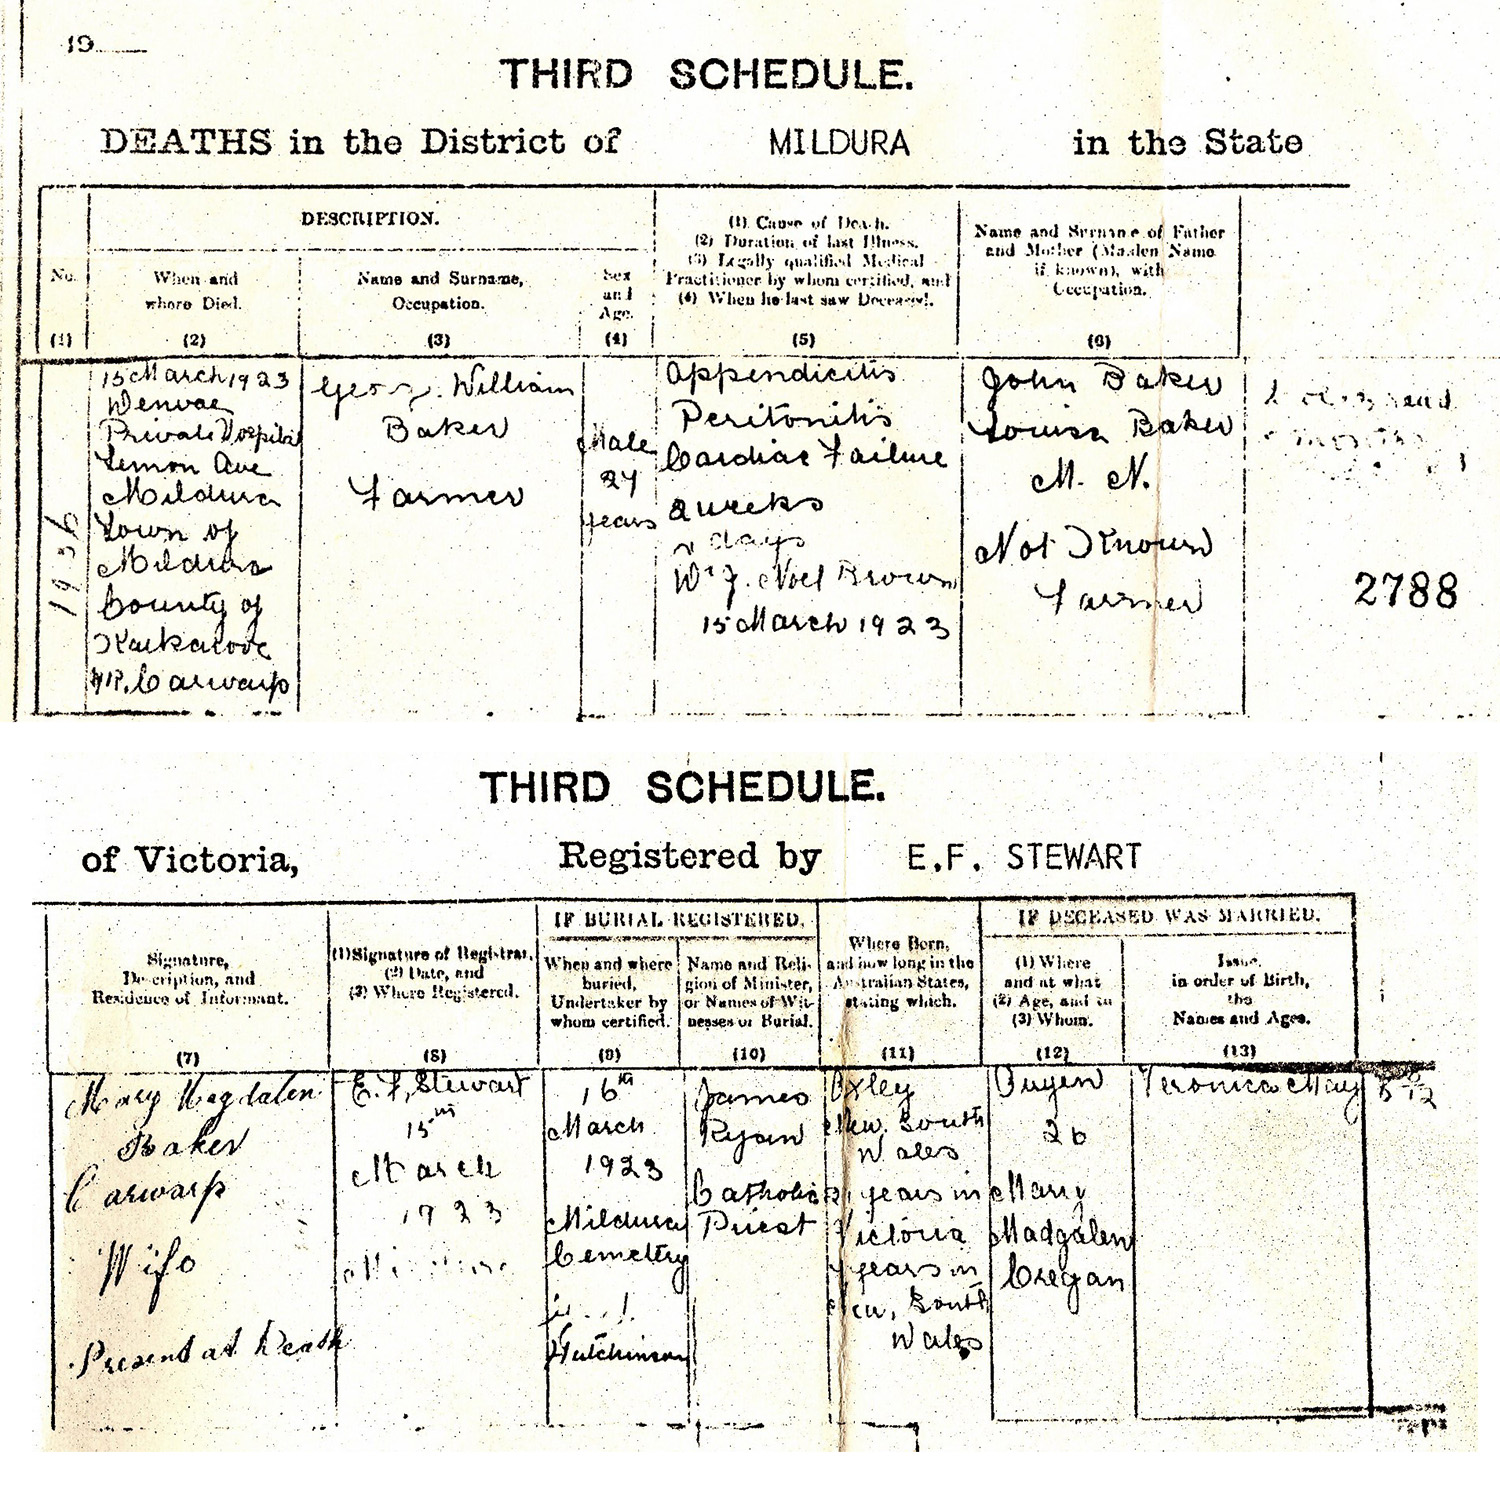 19
THIRD SCHEDULE.
DEATHS in the District of MILDURA in the State
DESCRIPTION.
No.
(1)
When and
where Died.
(2)
Name and Surname,
Occupation.
(3)
Sex
and
Age.
(4)
(1) Cause of Death.
(2) Duration of last Illness.
(3) Legally qualified Medical
Practitioner by whom certified, and
(4) When he last saw Deceased.
(5)
Name and Surname of Father
and Mother (Maiden Name
if known), with
Occupation.
(6)
15 March 1923
Private Hospital
Lemon Ave
Mildura
Town of
Mildura
County of
Karkarooc
Carwarp
William
Baker
Farmer
Male
years
Appendicitis
Peritonitis
Cardiac Failure
weeks
days
Noel Brown
15 March 1923
John Baker
Louisa Baker
M. N.
Not Known
Farmer
2788
THIRD SCHEDULE.
of Victoria, Registered by E.F. STEWART
Signature,
Description, and
Residence of Informant.
(7)
(1) Signature of Registrar,
(2) Date, and
(3) Where Registered.
(8)
IF BURIAL REGISTERED.
When and where
buried,
Undertaker by
whom certified.
(9)
Name and Reli-
gion of Minister,
or Names of Wit-
nesses of Burial.
(10)
Where Born,
and how long in the
Australian States,
stating which.
(11)
IF DECEASED WAS MARRIED.
(1) Where
and at what
(2) Age, and to
(3) Whom.
(12)
Issue,
in order of Birth,
the
Names and Ages.
(13)
Mary Magdalen
Baker
Carwarp
Wife
Present at Death
E. F. Stewart
15th
March
1923
16th
March
1923
Mildura
Cemetry
Hutchinson
James
Ryan
Catholic
Priest
Oxley
New South
Wales
years in
Victoria
years in
New South
Wales
Ouyen
26
Mary
Madgalen
Cregan
Veronica May